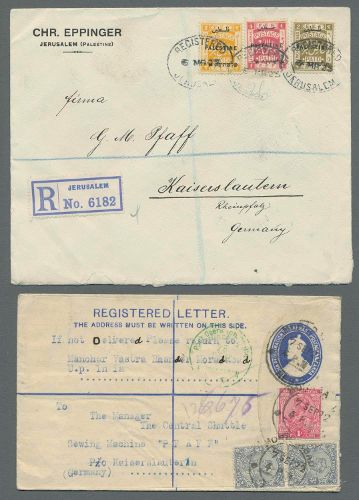 CHR. EPPINGER
JERUSALEM (PALESTINE)
REGISTERED
JERUSALEM
PALESTINE
Firma
G. M. Pfaff
Kaiserslautern
Rheinpfalz
Germany
R JERUSALEM
No. 6182
REGISTERED LETTER.
THE ADDRESS MUST BE WRITTEN ON THIS SIDE.
If not delivered Please return to
Manohar Vastra Bhandar Moradabad
U.p. India
To
The Manager
The Central Shuttle
Sewing Machine "P F A F F"
P/o Kaiserslautern
(Germany)